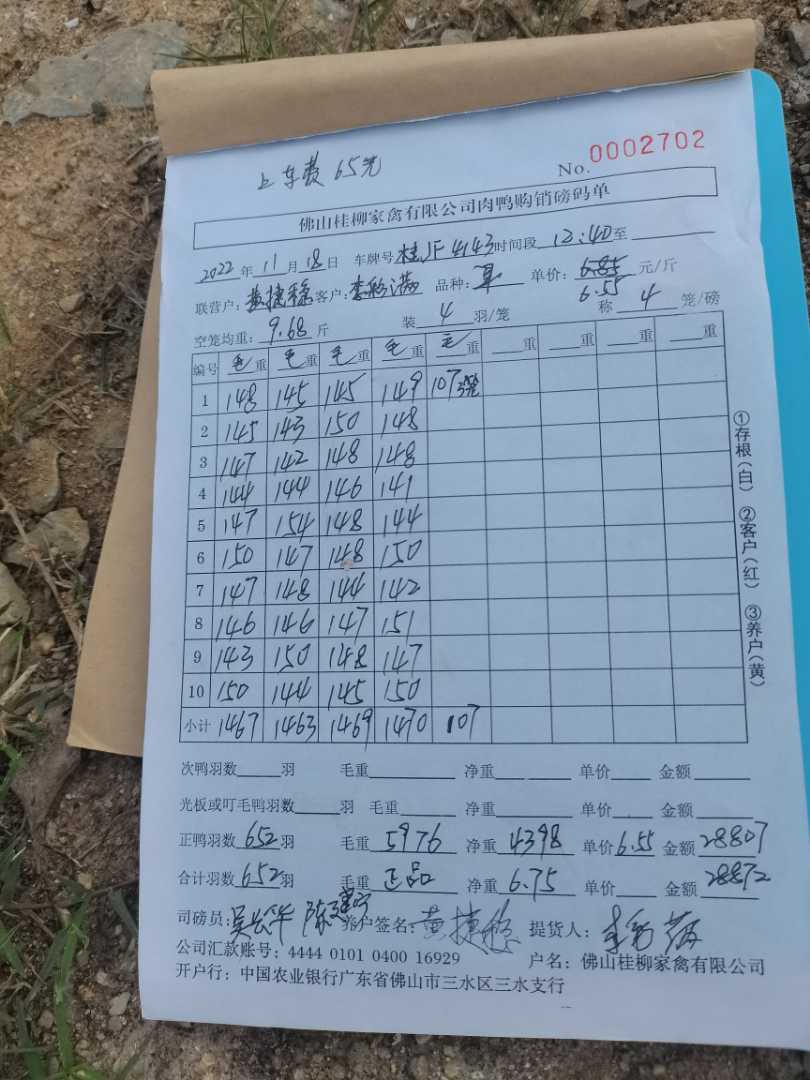 上车费 65元
No. 0002702
佛山桂柳家禽有限公司肉鸭购销磅码单
2022 年 11 月 18 日 车牌号 桂JF4143 时间段 12:40 至
联营户: 黄捷稳 客户: 品种: 单价: 6.85 元/斤
6.55
空笼均重: 9.68 斤 装 4 羽/笼 称 4 笼/磅
编号 毛重 毛重 毛重 毛重 毛重 重 重 重 重
1 148 145 145 149 107
2 145 143 150 148
3 147 142 148 148
4 144 144 146 141
5 147 154 148 144
6 150 147 148 150
7 147 148 144 142
8 146 146 147 151
9 143 150 148 147
10 150 144 145 150
小计 1467 1463 1469 1470 107
①存根(白) ②客户(红) ③养户(黄)
次鸭羽数 羽 毛重 净重 单价 金额
光板或叮毛鸭羽数 羽 毛重 净重 单价 金额
正鸭羽数 652 羽 毛重 5976 净重 4398 单价 6.55 金额 28807
合计羽数 652 羽 毛重 正品 净重 6.75 单价 金额 28872
司磅员: 养户签名: 黄捷稳 提货人:
公司汇款账号: 4444 0101 0400 16929 户名: 佛山桂柳家禽有限公司
开户行: 中国农业银行广东省佛山市三水区三水支行